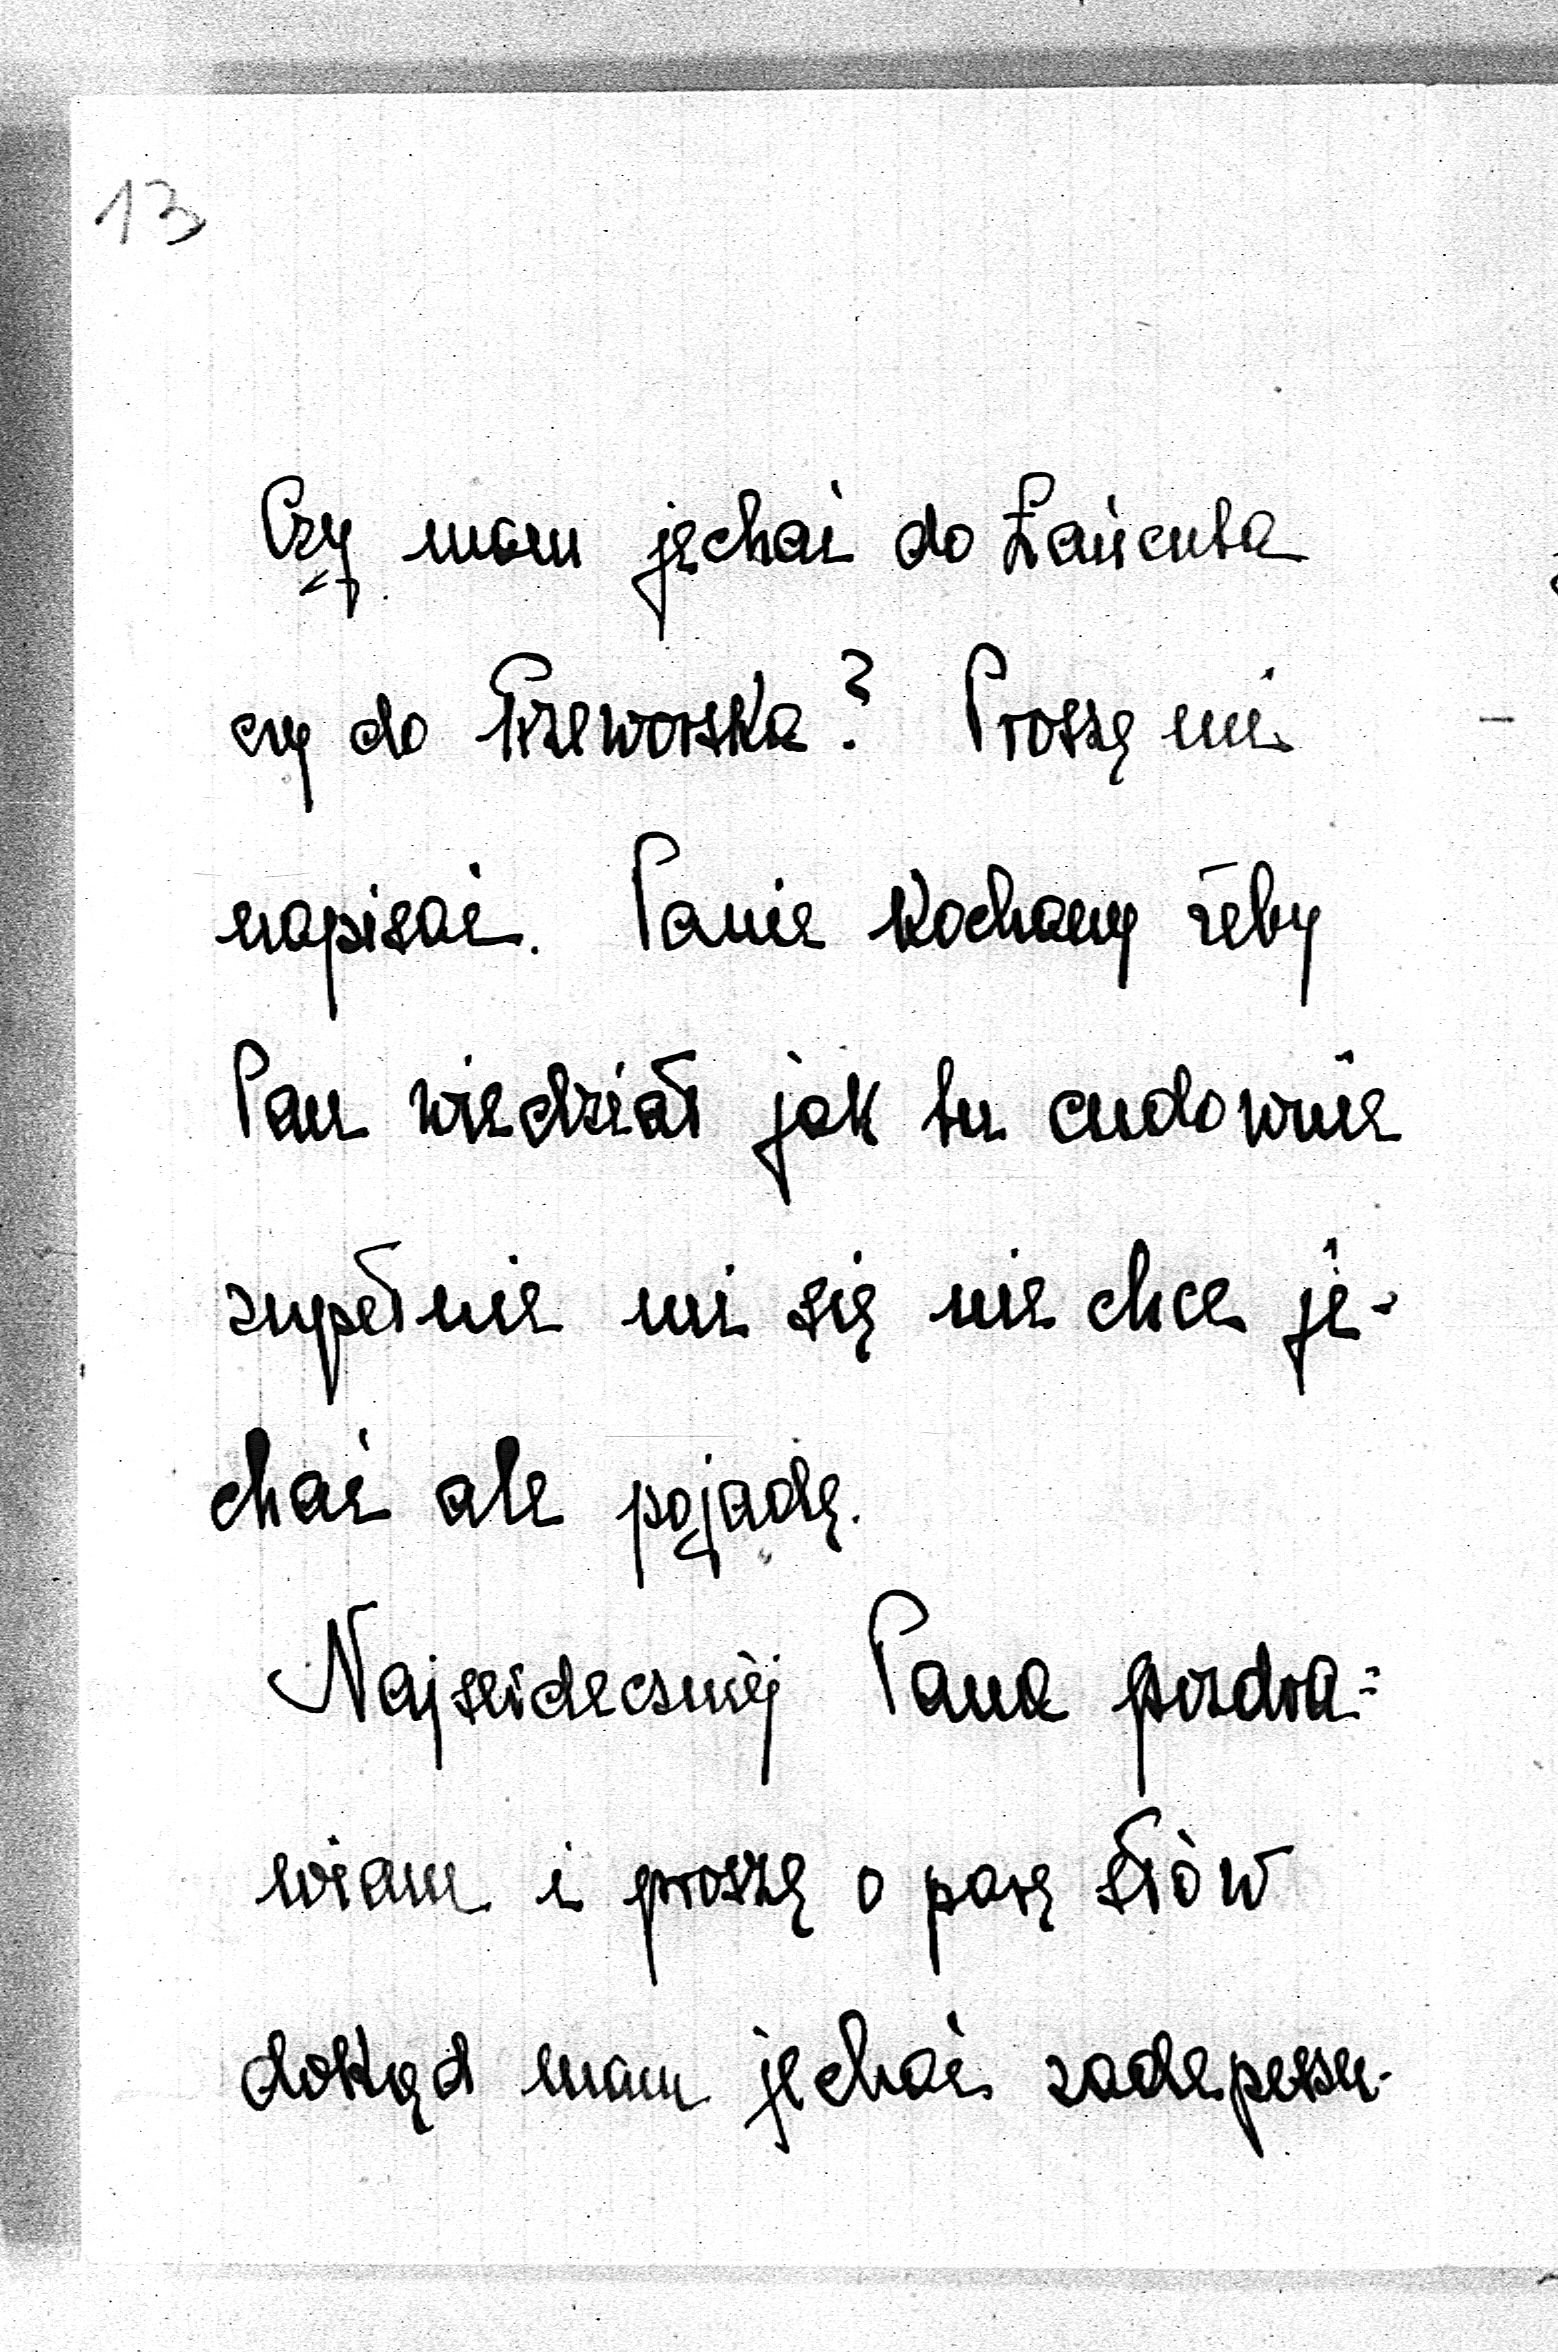 13
Czy mam jechać do Łańcuta
czy do Przeworska? Proszę mi
napisać. Panie Kochany żeby
Pan wiedział jak tu cudownie
zupełnie mi się nie chce je-
chać ale pojadę.
Najserdeczniej Pana pozdra=
wiam i proszę o parę słów
dokąd mam jechać zadepeszu-